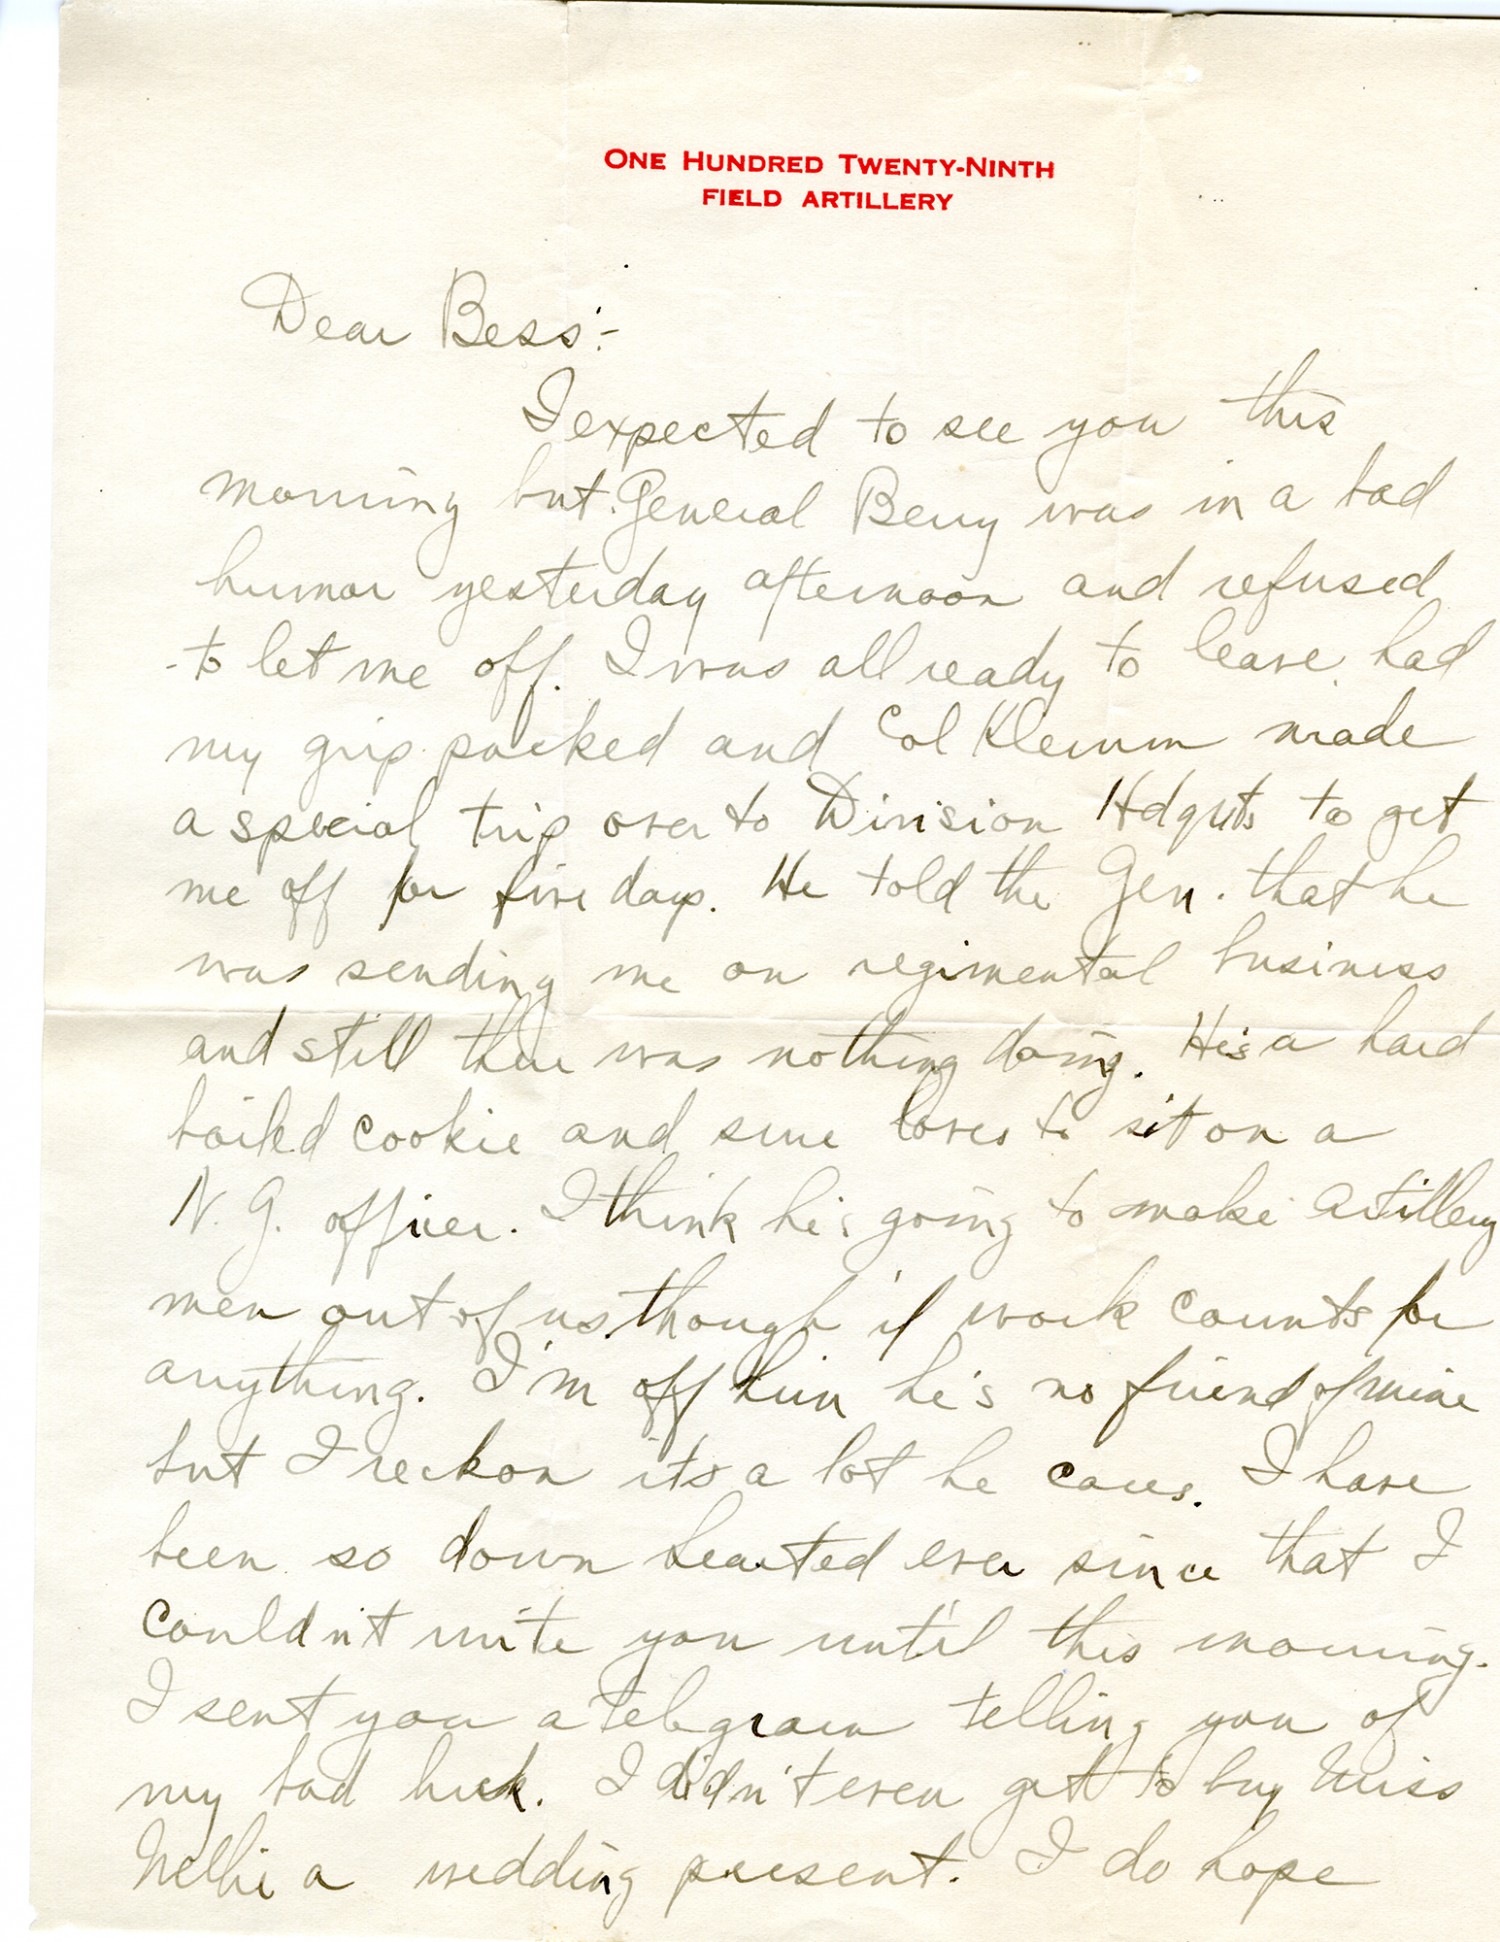 ONE HUNDRED TWENTY-NINTH
FIELD ARTILLERY
Dear Bess:-
I expected to see you this
morning but General Berry was in a bad
humor yesterday afternoon and refused
to let me off. I was all ready to leave, had
my grip packed and Col Klemm made
a special trip over to Division Hdqrts to get
me off for five days. He told the Gen. that he
was sending me on regimental business
and still there was nothing doing. He's a hard
boiled cookie and sure loves to sit on a
N. G. officer. I think he's going to make artillery
men out of us though if work counts for
anything. I'm off him he's no friend of mine
but I reckon its a lot he cares. I have
been so down hearted ever since that I
couldn't write you until this morning.
I sent you a telegram telling you of
my bad luck. I didn't even get to buy Miss
Nellie a wedding present. I do hope